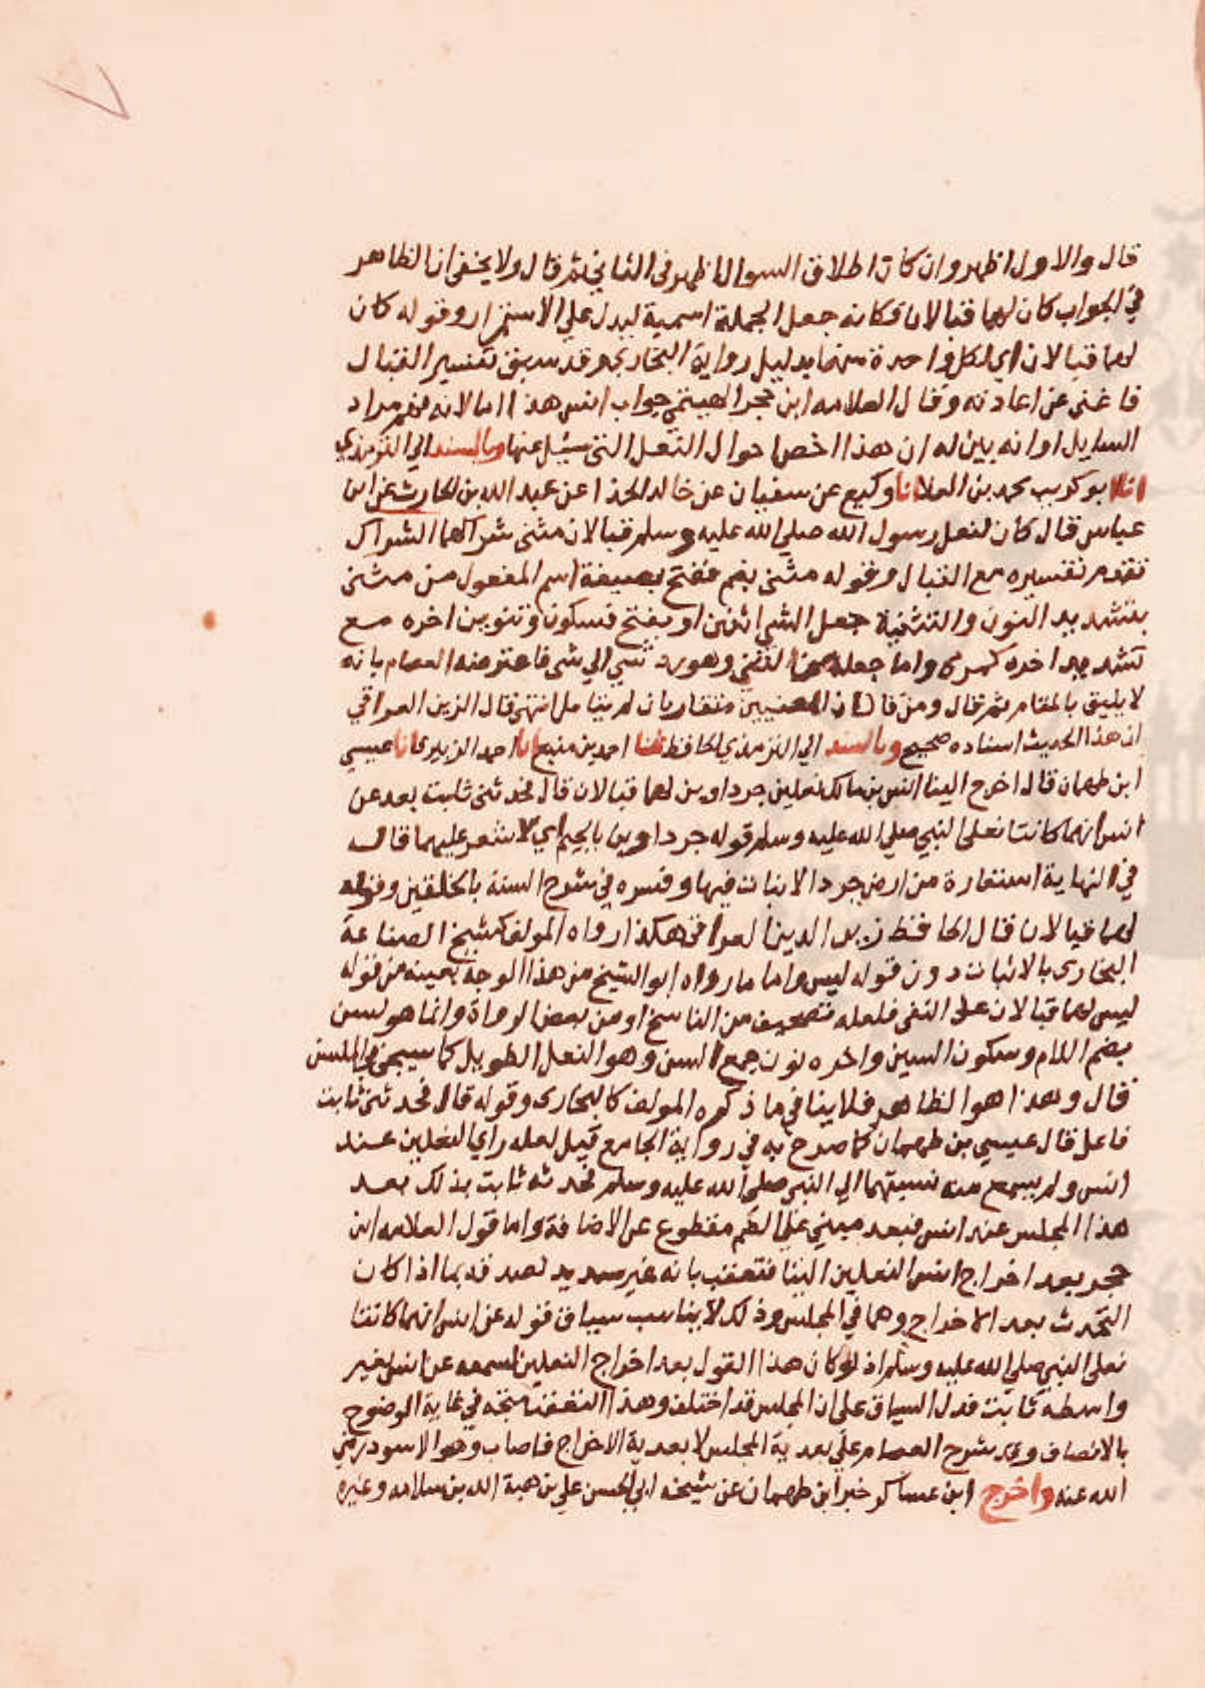 قال والاول اظهر وان كان اطلاق السوال اظهر في الثاني ثم قال ولا يخفى ان الظاهر
في الجواب كان لهما قبالان فكانه جعل الجملة اسمية ليدل علي الاستمرار وقوله كان
لهما قبالان اي لكل واحدة منهما بدليل رواية البخاري وقد سبق تفسير القبال
فاغنى عن اعادته وقال العلامه ابن حجر الهيتمي جواب انس هذا اما لانه فهم مراد
السايل او انه بين له ان هذا اخص احوال النعل التي سئل عنها وبالسند الي الترمذي
انا ابو كريب محمد بن العلا انا وكيع عن سفيان عن خالد الحذا عن عبد الله بن الحارث عن ابن
عباس قال كان لنعل رسول الله صلي الله عليه وسلم قبالان مثنى شراكهما الشراك
تقدم تفسيره مع القبال وقوله مثنى بضم ففتح بصيغة اسم المفعول من مثنى
بتشديد النون والتثنية جعل الشي اثنين او بفتح فسكون وتنوين اخره مع
تشديد اخره كمرمى واما جعله من الثني وهو رد شي الي شي فاعترضه العصام بانه
لا يليق بالمقام ثم قال ومن قال ان المعنيين متقاربان لم يتامل انتهى قال الزين العراقي
ان هذا الحديث اسناده صحيح وبالسند الي الترمذي الحافظ ثنا احمد بن منيع انا احمد الزبيري انا عيسي
ابن طهمان قال اخرج الينا انس بن مالك نعلين جرداوين لهما قبالان قال فحدثني ثابت بعد عن
انس انهما كانتا نعلي النبي صلي الله عليه وسلم قوله جرداوين بالجيم اي لا شعر عليهما قال
في النهاية استعارة من ارض جردا لا نبات فيها وفسره في شرح السنة بالخلقين وقوله
لهما قبالان قال الحافظ زين الدين العراقي هكذا رواه المولف كشيخ الصناعة
البخارى بالاثبات دون قوله ليس واما ما رواه ابو الشيخ من هذا الوجه بعينه من قوله
ليس لهما قبالان على النفي فلعله تصحيف من الناسخ او من بعض الرواة وانما هو لسن
بضم اللام وسكون السين واخره نون جمع السن وهو النعل الطويل كما سيجي في الملسن
قال وهذا هو الظاهر فلا ينافي ما ذكره المولف كالبخارى وقوله قال فحدثني ثابت
فاعل قال عيسي بن طهمان كما صرح به في رواية الجامع قيل لعله راي النعلين عند
انس ولم يسمع منه نسبتهما الي النبي صلي الله عليه وسلم فحدثه ثابت بذلك بعد
هذا المجلس عند انس فبعد مبني علي الضم مقطوع عن الاضافة واما قول العلامه ابن
حجر بعد اخراج انس النعلين الينا فتعقب بانه غير سديد لصدقه بما اذا كان
التحدث بعد الاخراج وهما في المجلس وذلك لا يناسب سياق قوله عن انس انهما كانتا
نعلي النبي صلي الله عليه وسلم اذ لو كان هذا القول بعد اخراج النعلين لسمعه عن انس بغير
واسطة ثابت فدل السياق علي ان المجلس قد اختلف وهذا التعقب متجه في غاية الوضوح
بالانصاف وعبر شرح العصام علي بعدية المجلس لا بعدية الاخراج فاصاب وهو الاسود رضي
الله عنه واخرج ابن عساكر خبر ابن طهمان عن شيخه ابي الحسن علي بن هبة الله بن سلامه وغيره